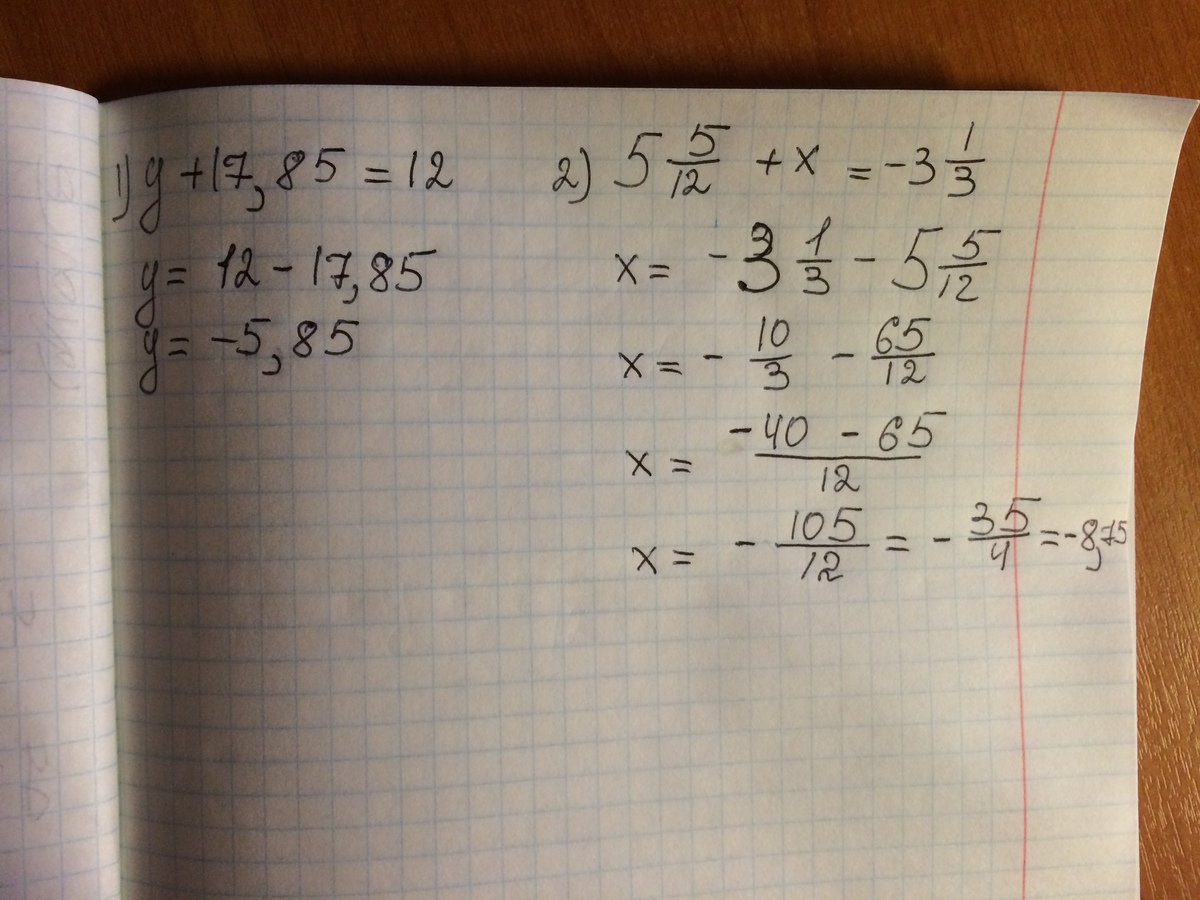 1) y + 17,85 = 12
y = 12 - 17,85
y = -5,85
2) 5 5/12 + x = -3 1/3
x = -3 1/3 - 5 5/12
x = - 10/3 - 65/12
x = (-40 - 65)/12
x = - 105/12 = - 35/4 = -8,75